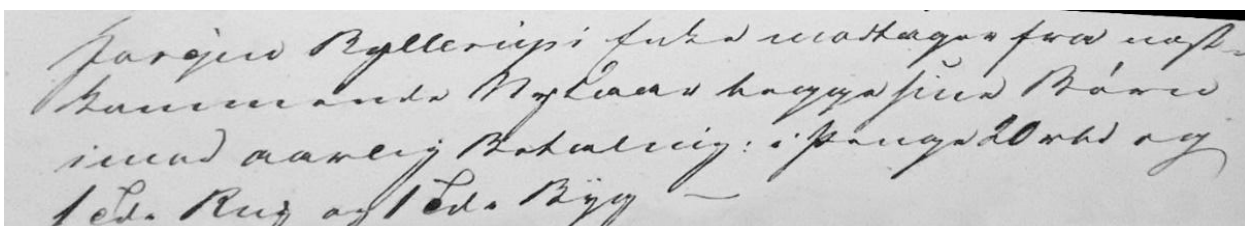 Jørgen Byllerups Enke modtager fra næst-
kommende Nytaar begge sine Børn
imod aarlig Betaling: i Penge 20 rbd og
1 Tde Rug og 1 Tde Byg —